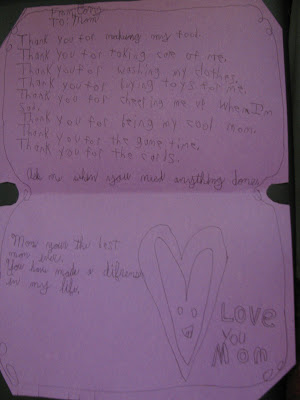 To: Mom
Thank you for making my food.
Thank you for taking care of me.
Thank you for washing my clothes.
Thank you for buying toys for me.
Thank you for cheering me up when I'm
sad.
Thank you for being my cool mom.
Thank you for the game time.
Thank you for the cards.
Ask me when you need anything done.
Mom your the best
mom ever.
You have made a
in my life.
Love
you
Mom